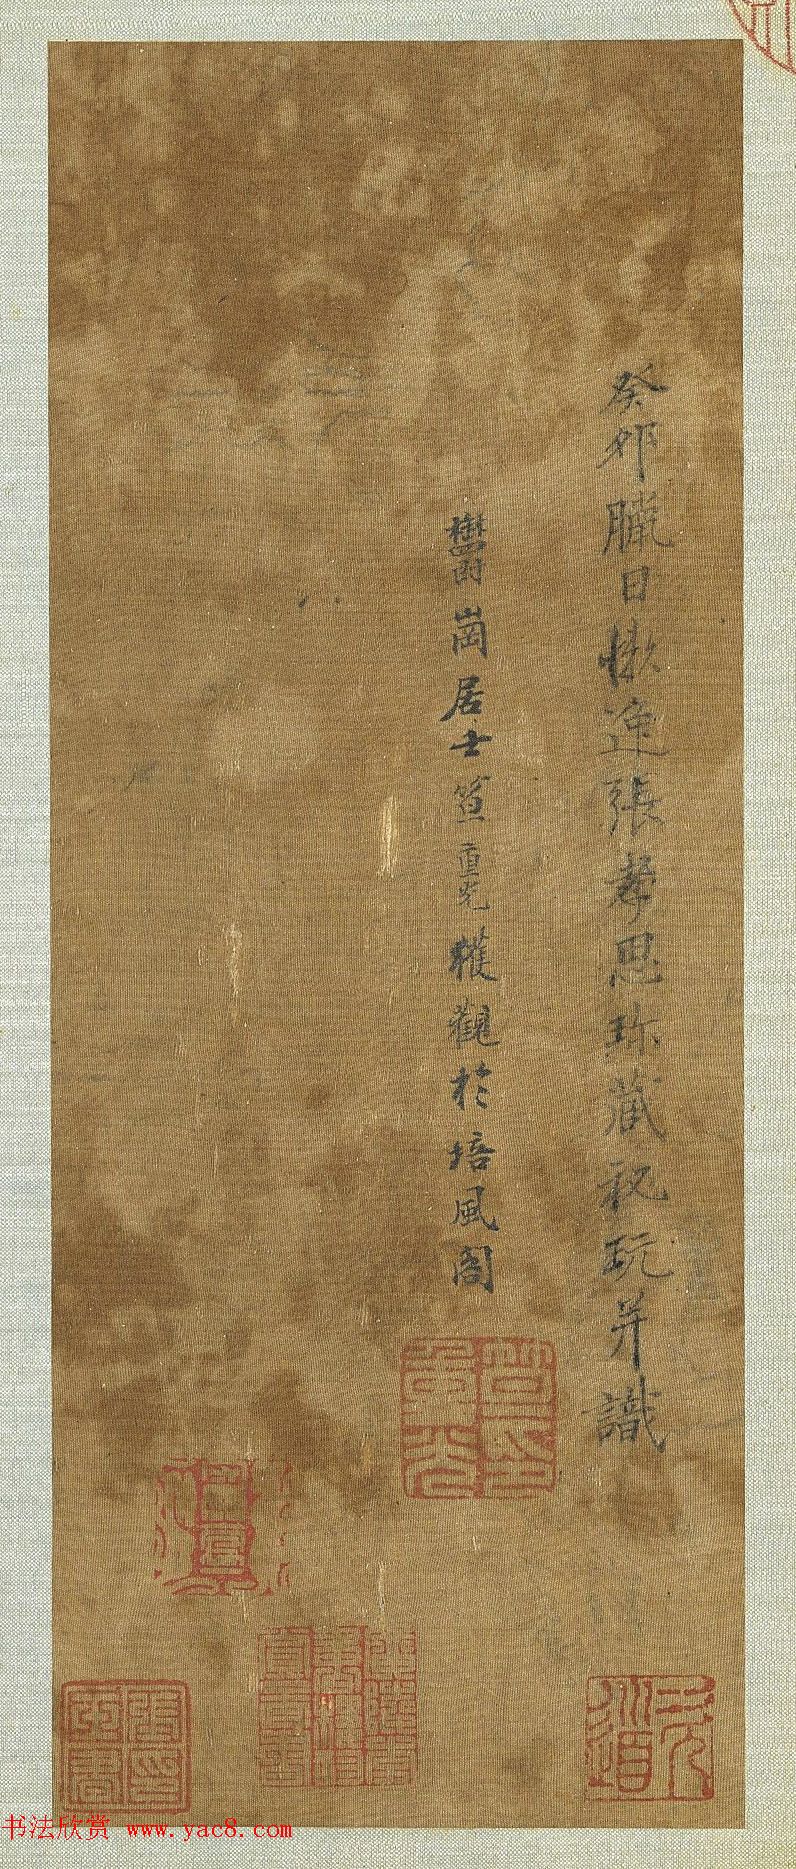 癸卯臘日懶逸張孝思珎藏秘玩并識
鬱岡居士笪重光獲觀於培風閣
笪重光印
书法欣赏 www.yac8.com